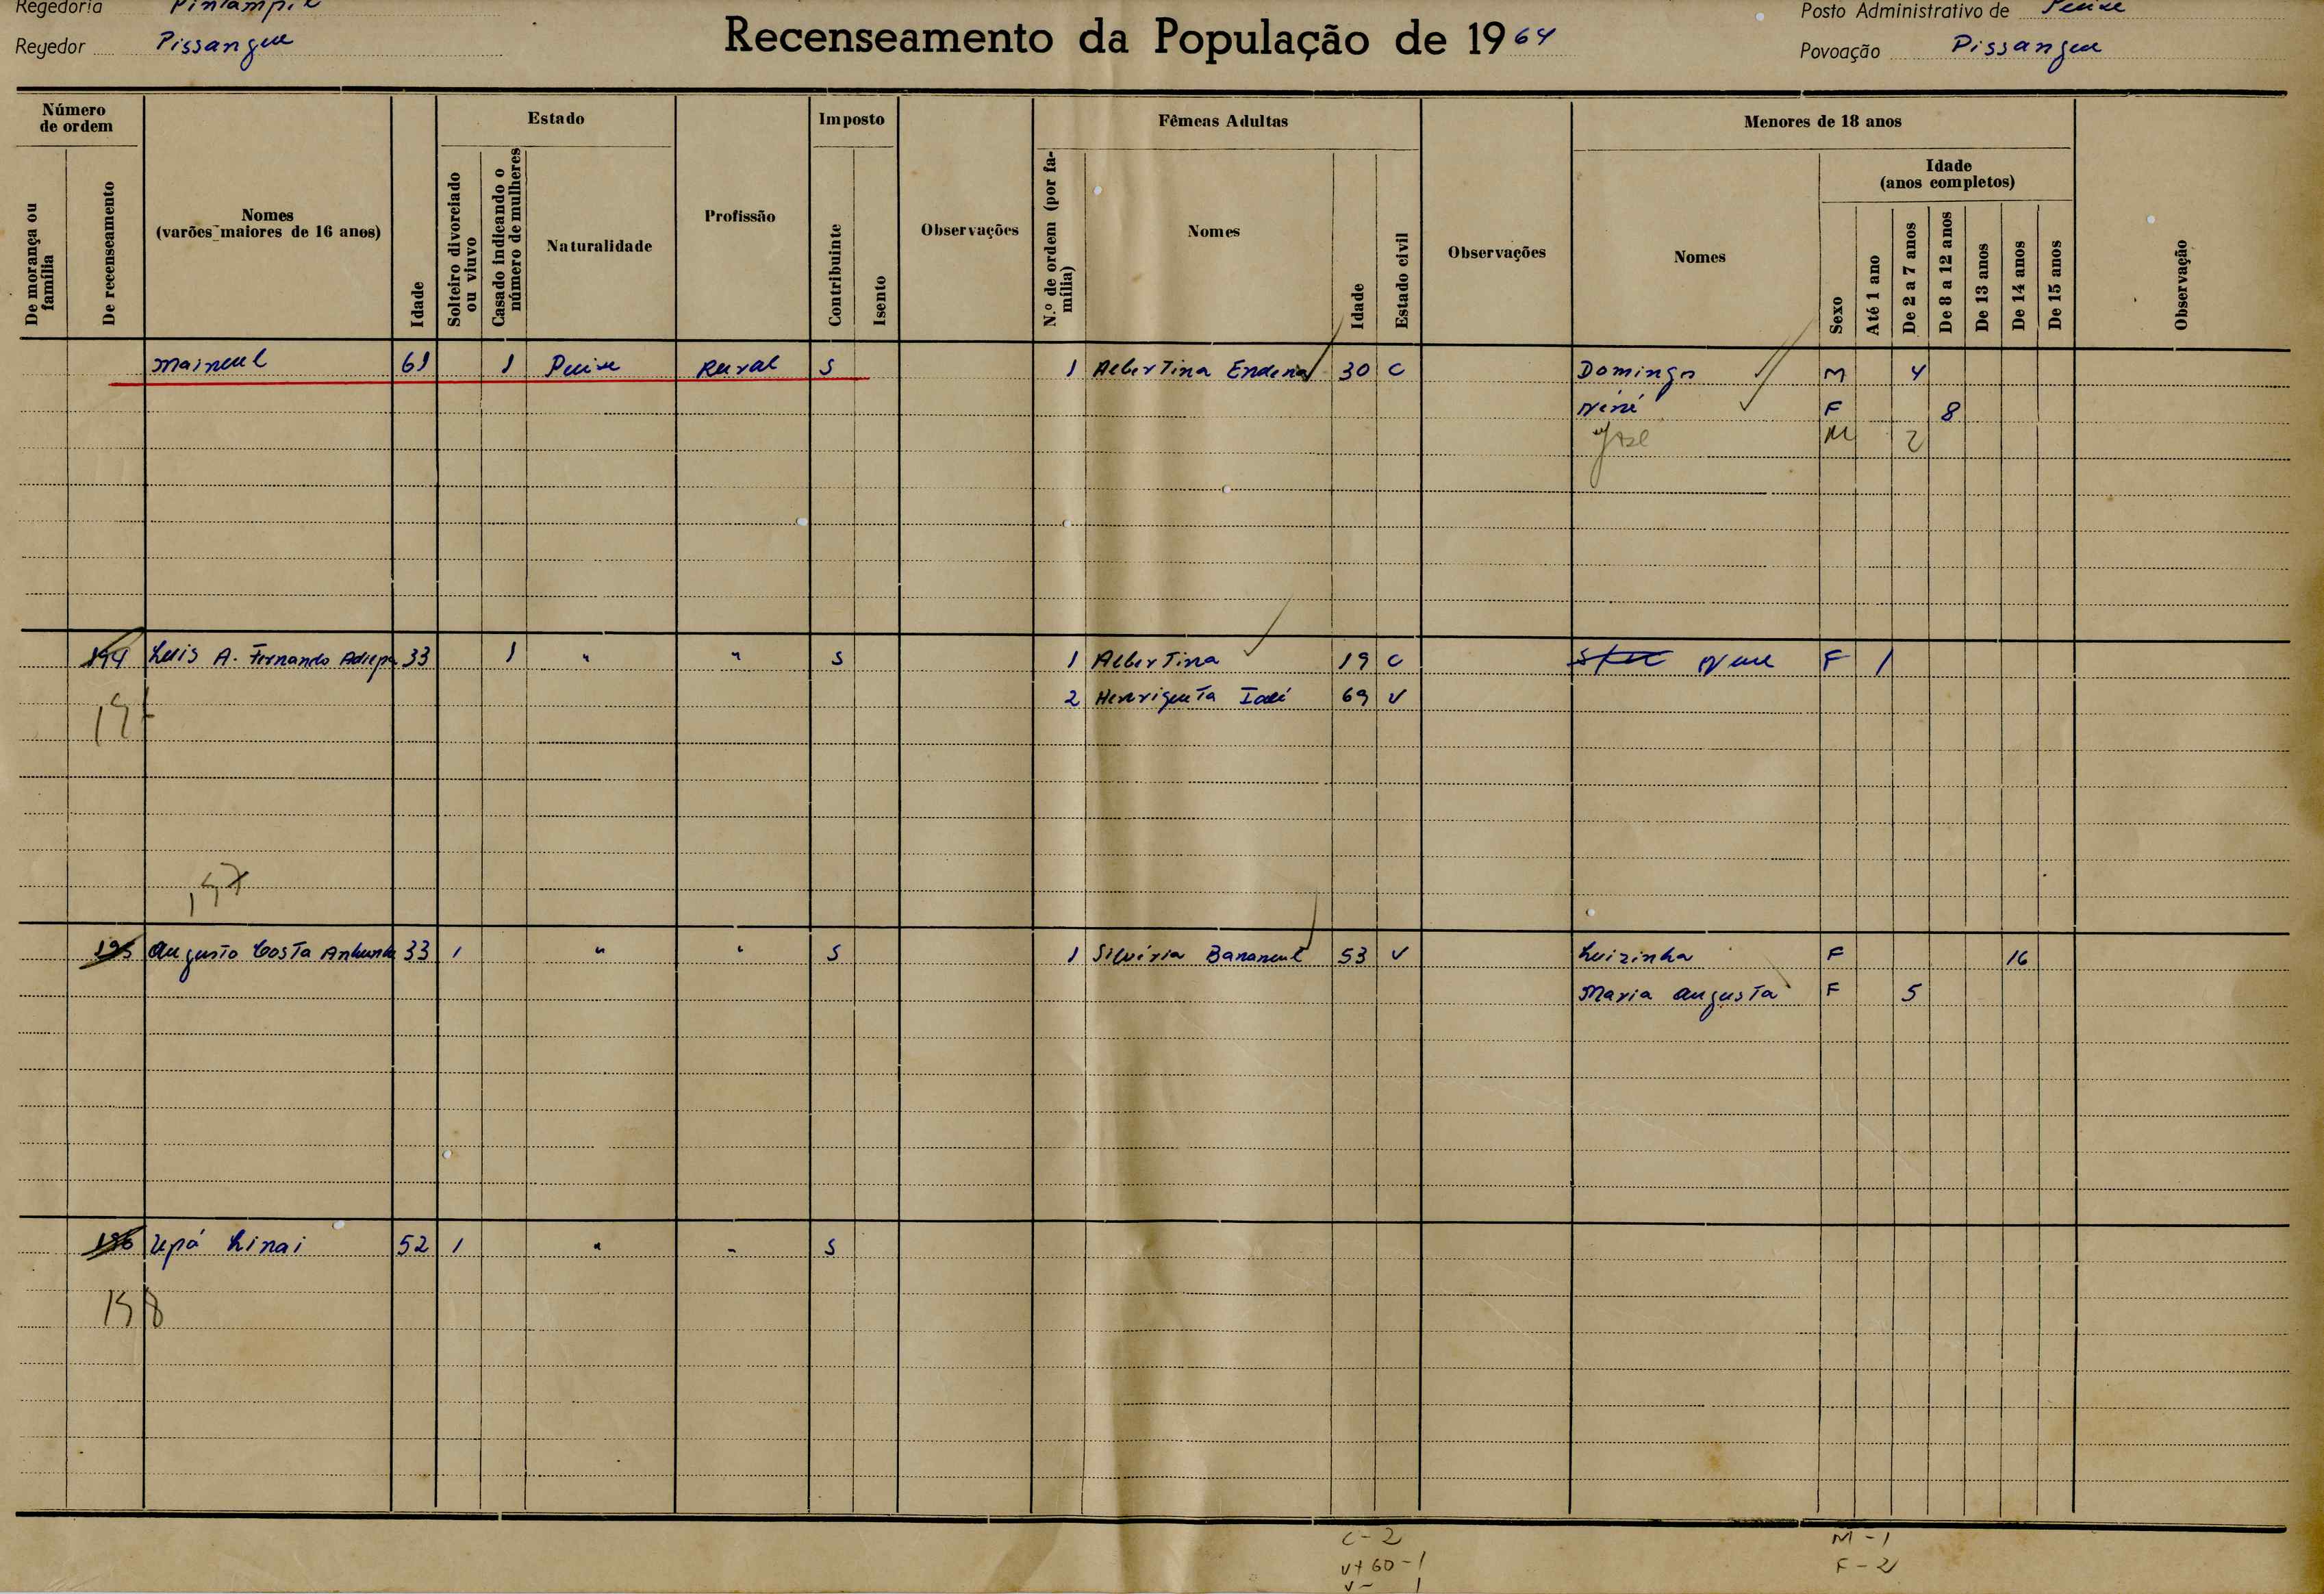 Regedoria
Regedor Pissangue
Recenseamento da População de 1964
Posto Administrativo de
Povoação Pissangue
Número de ordem
De morança ou família
De recenseamento
Nomes (varões maiores de 16 anos)
Idade
Estado
Solteiro divorciado ou viuvo
Casado indicando o número de mulheres
Naturalidade
Profissão
Imposto
Contribuinte
Isento
Observações
Fêmeas Adultas
N.º de ordem (por família)
Nomes
Idade
Estado civil
Observações
Menores de 18 anos
Nomes
Sexo
Idade (anos completos)
Até 1 ano
De 2 a 7 anos
De 8 a 12 anos
De 13 anos
De 14 anos
De 15 anos
Observação
61 1 Rural S 1 Albertina 30 C Domingos M 4
F 8
M 2
194 Luis A. Fernando 33 1 " " S 1 Albertina 19 C F 1
2 Henriqueta 69 V
197
195 Augusto Costa 33 1 " " S 1 Silvéria 53 V Luizinha F 16
Maria Augusta F 5
196 Upá Linai 52 1 " " S
198
C - 2
V + 60 - 1
V - 1
M - 1
F - 2